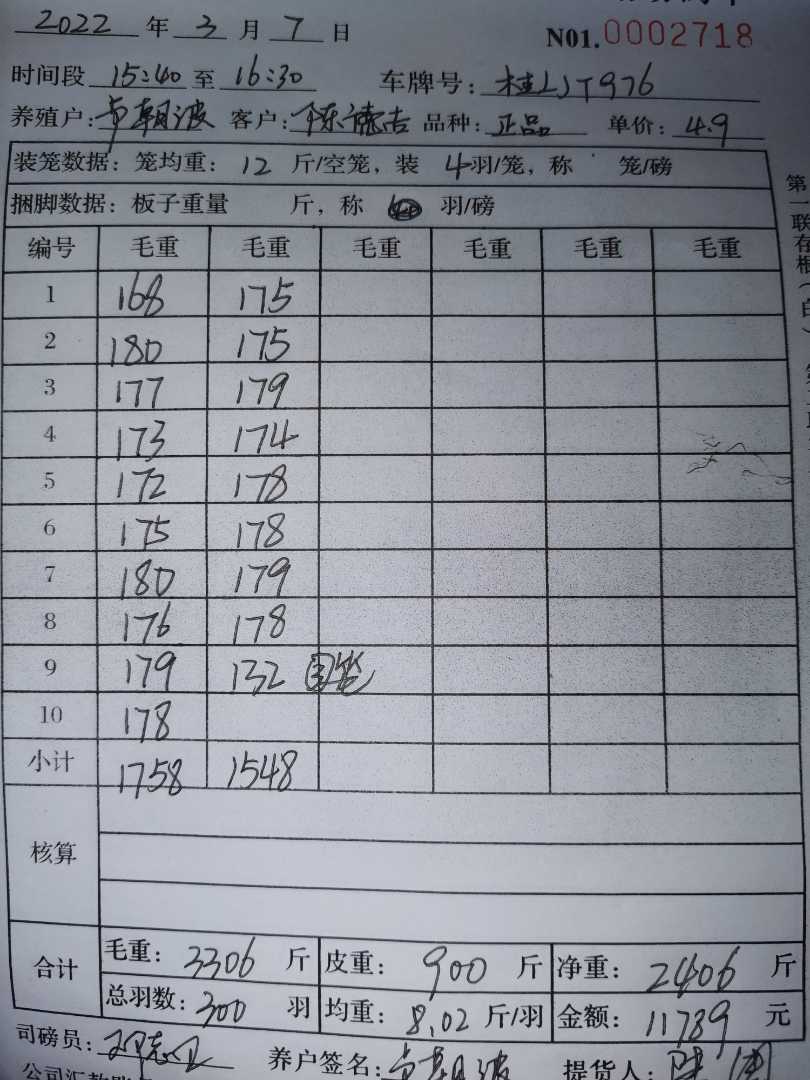 2022 年 3 月 7 日
N01. 0002718
时间段 15:40 至 16:30 车牌号: 桂LJT976
养殖户: 韦朝波 客户: 陈德吉 品种: 正品 单价: 4.9
装笼数据: 笼均重: 12 斤/空笼, 装 4羽/笼, 称 笼/磅
捆脚数据: 板子重量 斤, 称 羽/磅
编号 毛重 毛重 毛重 毛重 毛重 毛重
1 168 175
2 180 175
3 177 179
4 173 174
5 172 178
6 175 178
7 180 179
8 176 178
9 179 132 笼
10 178
小计 1758 1548
核算
合计 毛重: 3306 斤 皮重: 900 斤 净重: 2406 斤
总羽数: 300 羽 均重: 8.02 斤/羽 金额: 11789 元
司磅员: 养户签名: 韦朝波 提货人: 陈
公司汇款账
第一联存根(白)